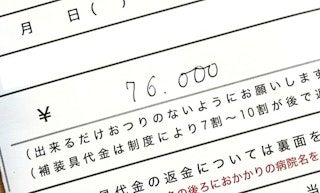 月 日( )
76.000
¥
(出来るだけおつりのないようにお願いします
(補装具代金は制度により7割～10割が後で返
具代金の返金については裏面を
の後ろにおかかりの病院名を